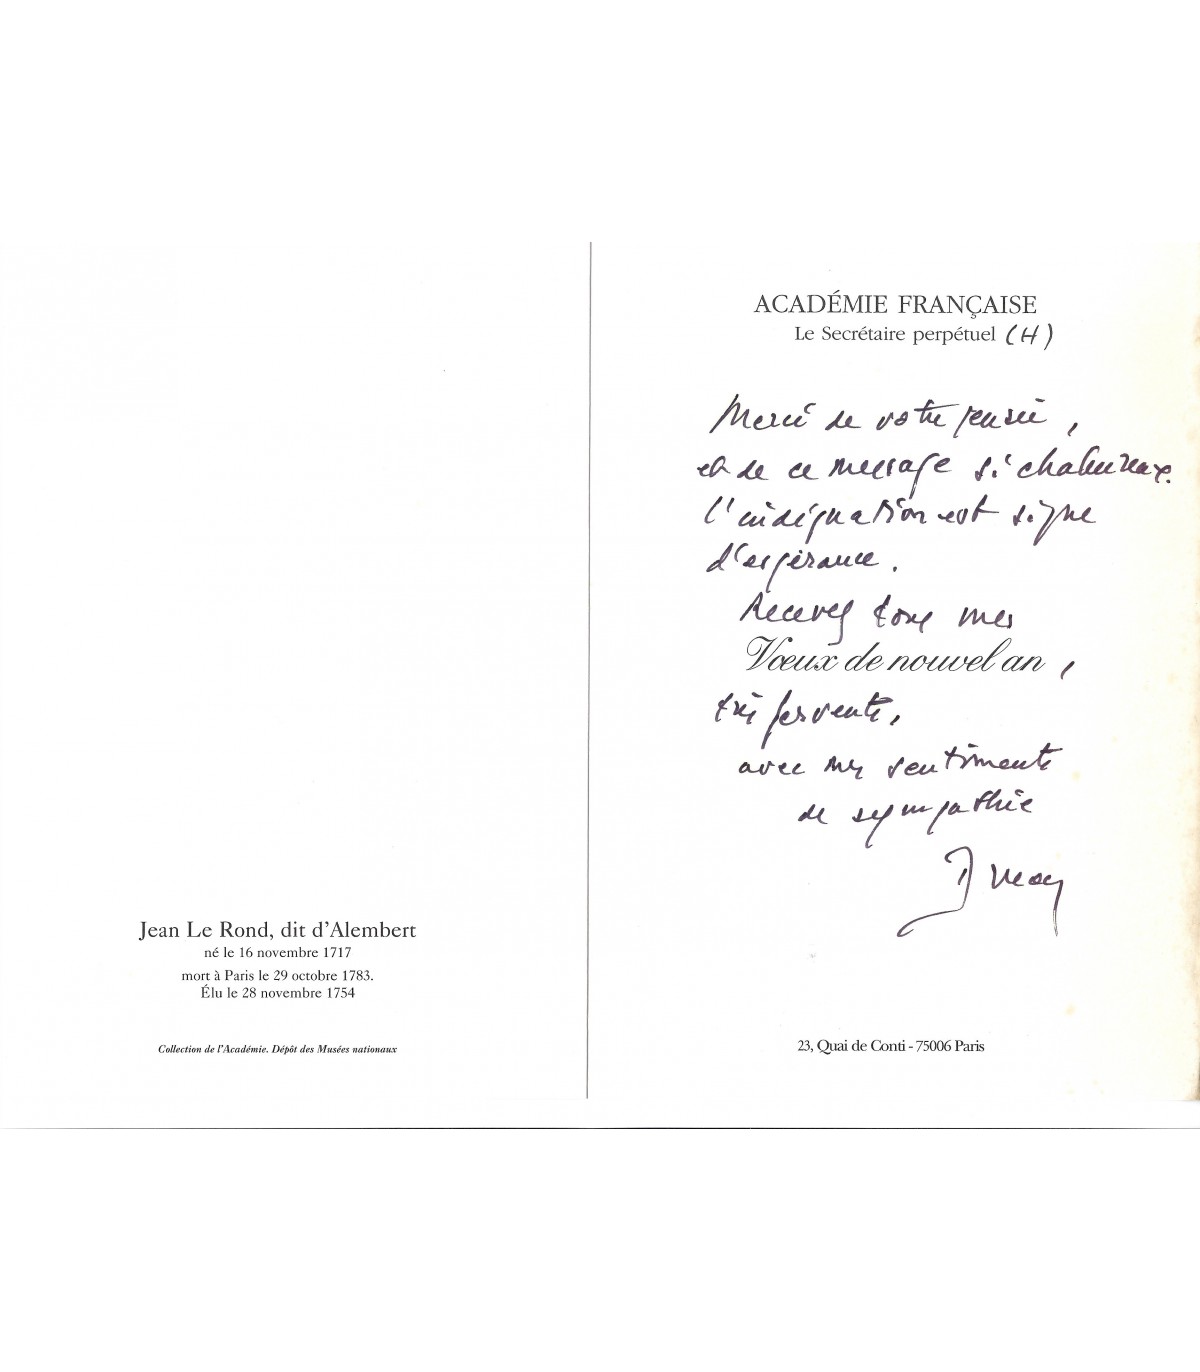 Jean Le Rond, dit d'Alembert
né le 16 novembre 1717
mort à Paris le 29 octobre 1783.
Élu le 28 novembre 1754
Collection de l'Académie. Dépôt des Musées nationaux
ACADÉMIE FRANÇAISE
Le Secrétaire perpétuel (H)
Merci de votre pensée,
et de ce message si chaleureux.
l'indignation est signe
d'espérance.
Recevez tous mes
Vœux de nouvel an,
très fervents,
avec mes sentiments
de sympathie
23, Quai de Conti - 75006 Paris